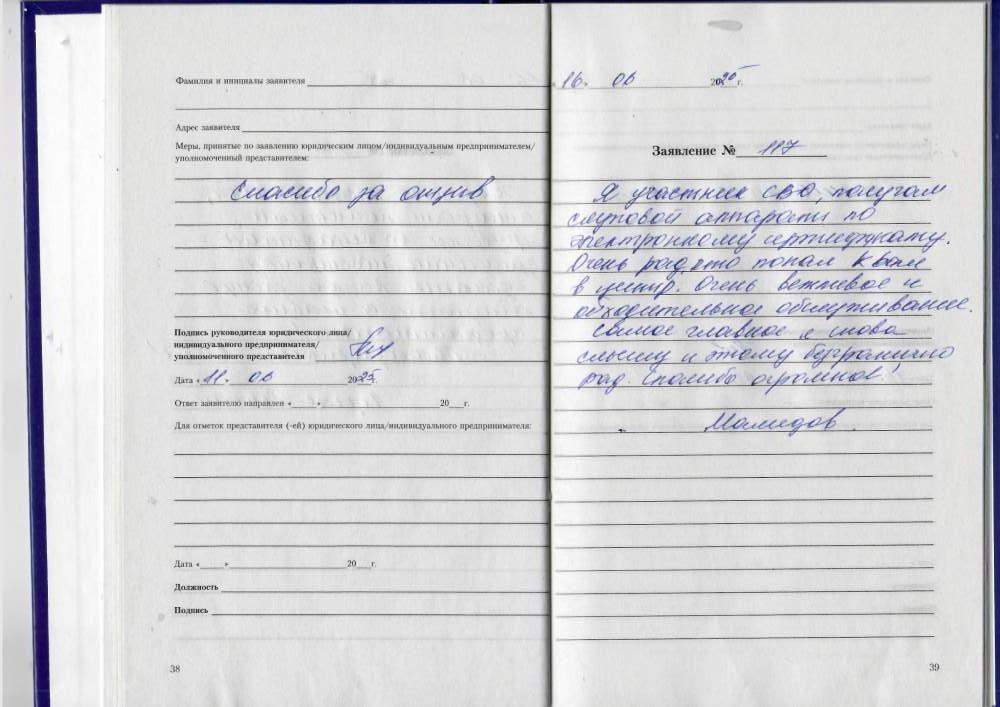 Фамилия и инициалы заявителя
Адрес заявителя
Меры, принятые по заявлению юридическим лицом/индивидуальным предпринимателем/
уполномоченный представителем:
Спасибо за отзыв
Подпись руководителя юридического лица/
индивидуального предпринимателя/
уполномоченного представителя
Дата «11» 06 2025г.
Ответ заявителю направлен «   » 20   г.
Для отметок представителя (-ей) юридического лица/индивидуального предпринимателя:
Дата «   » 20   г.
Должность
Подпись
38
«16» 06 2025 г.
Заявление № 117
Я участник СВО, получал
слуховой аппараты по
электронному сертификату.
Очень рад, что попал к Вам
в центр. Очень вежливое и
обходительное обслуживание.
Самое главное я снова
слышу и этому безгранично
рад. Спасибо огромное!
39